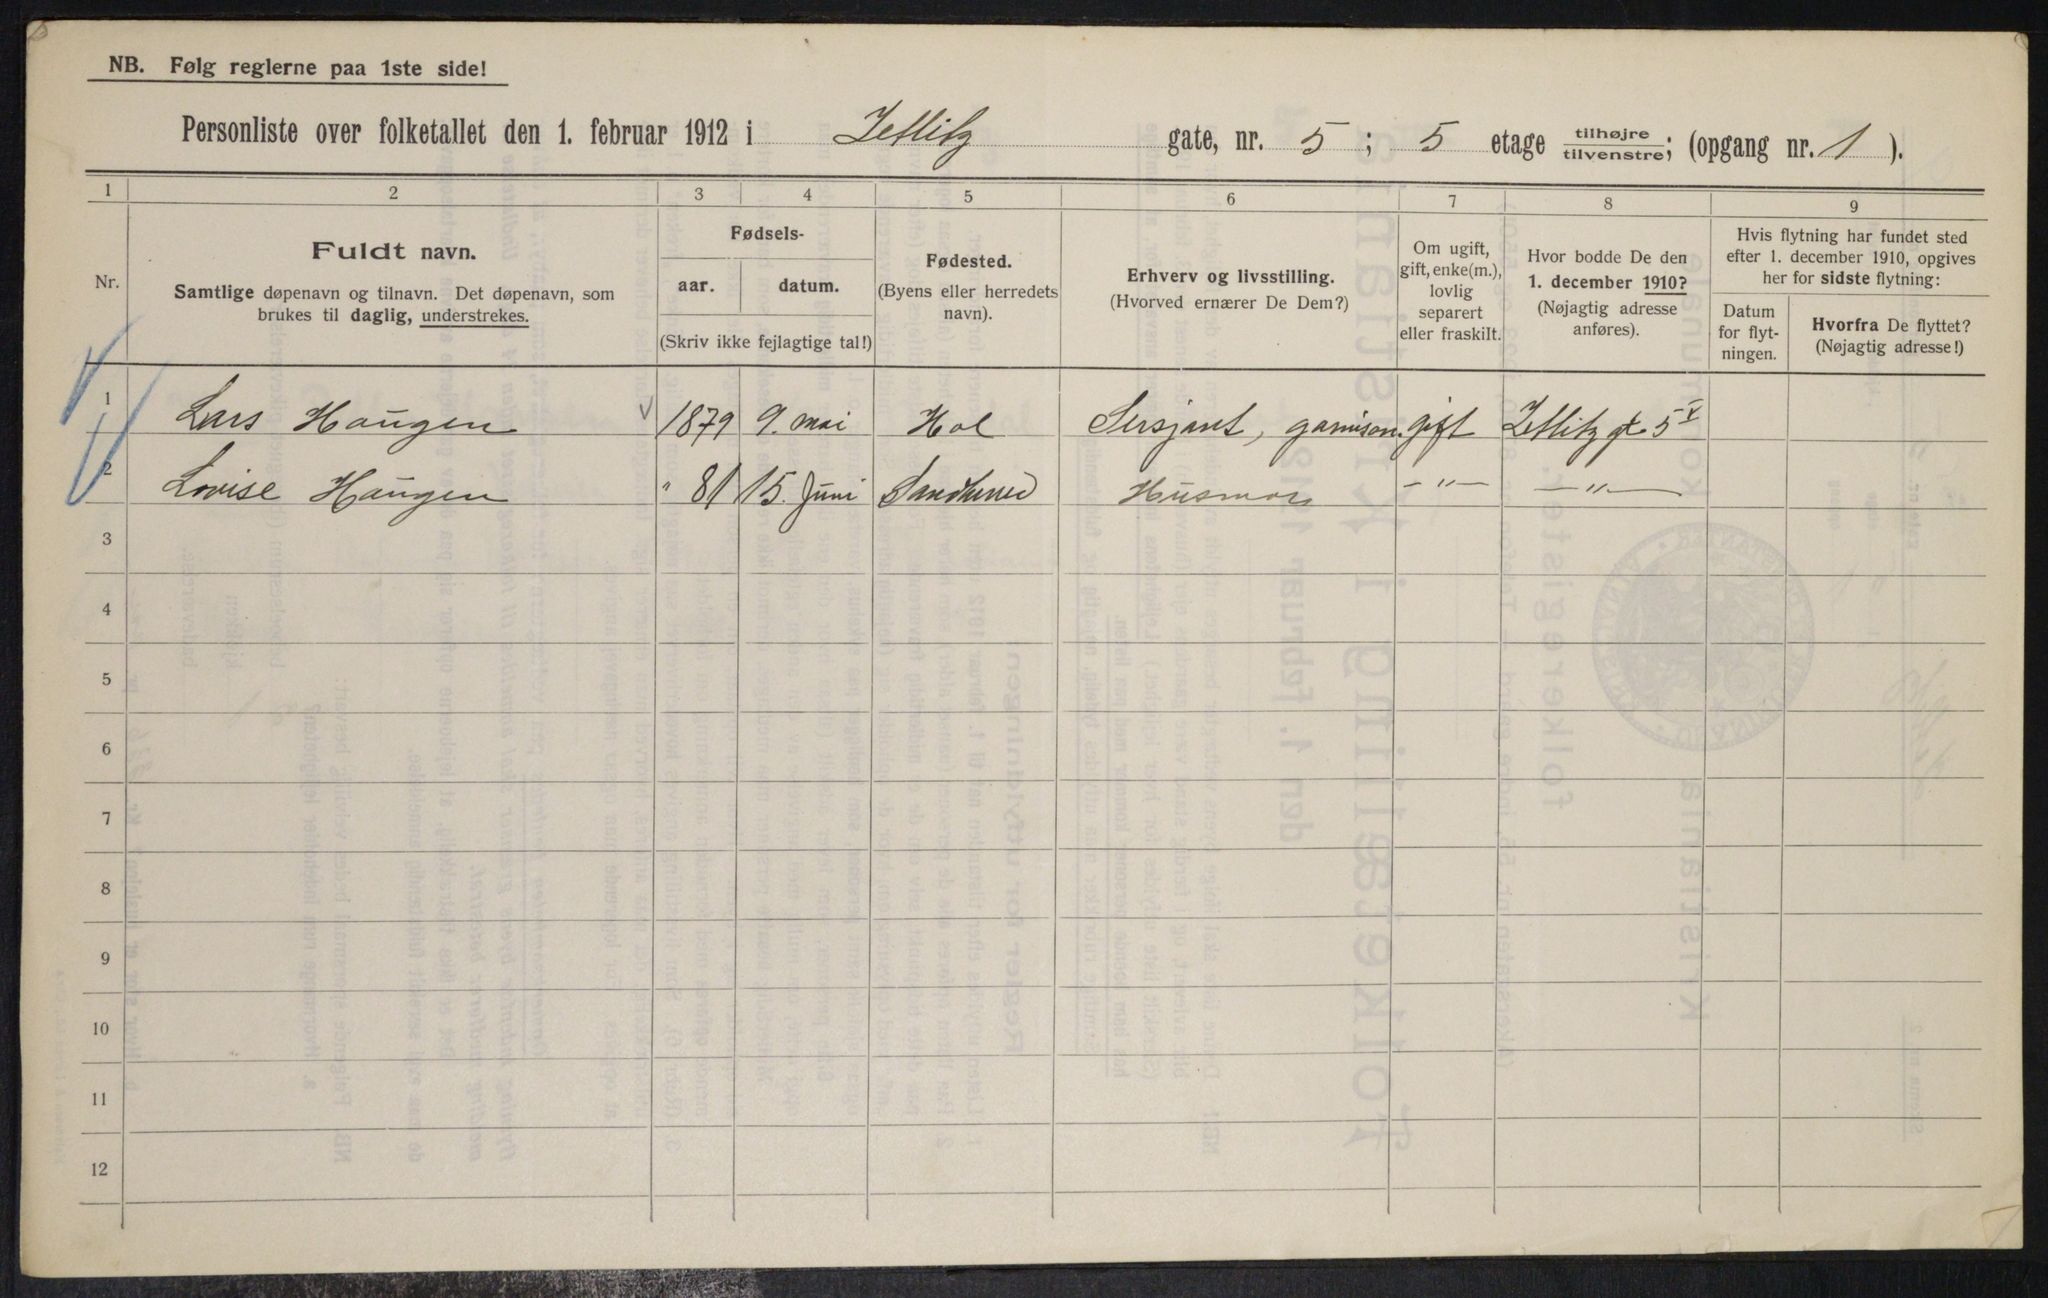 NB. Følg reglerne paa 1ste side!
Personliste over folketallet den 1. februar 1912 i Zetlitz gate, nr. 5 ; 5 etage tilhøjre/tilvenstre; (opgang nr. 1 ).
1 2 3 4 5 6 7 8 9
Nr.
Fuldt navn.
Samtlige døpenavn og tilnavn. Det døpenavn, som
brukes til daglig, understrekes.
Fødsels-
aar. datum.
(Skriv ikke fejlagtige tal!)
Fødested.
(Byens eller herredets
navn).
Erhverv og livsstilling.
(Hvorved ernærer De Dem?)
Om ugift,
gift, enke(m.),
lovlig
separert
eller fraskilt.
Hvor bodde De den
1. december 1910?
(Nøjagtig adresse
anføres).
Hvis flytning har fundet sted
efter 1. december 1910, opgives
her for sidste flytning:
Datum
for flyt-
ningen.
Hvorfra De flyttet?
(Nøjagtig adresse!)
1 Lars Haugen 1879 9. mai Hol Sersjant, garnison. gift Zetlitz gt. 5 V
2 Lovise Haugen " 81 15. Juni Sandherred Husmor -"- -"-
3
4
5
6
7
8
9
10
11
12